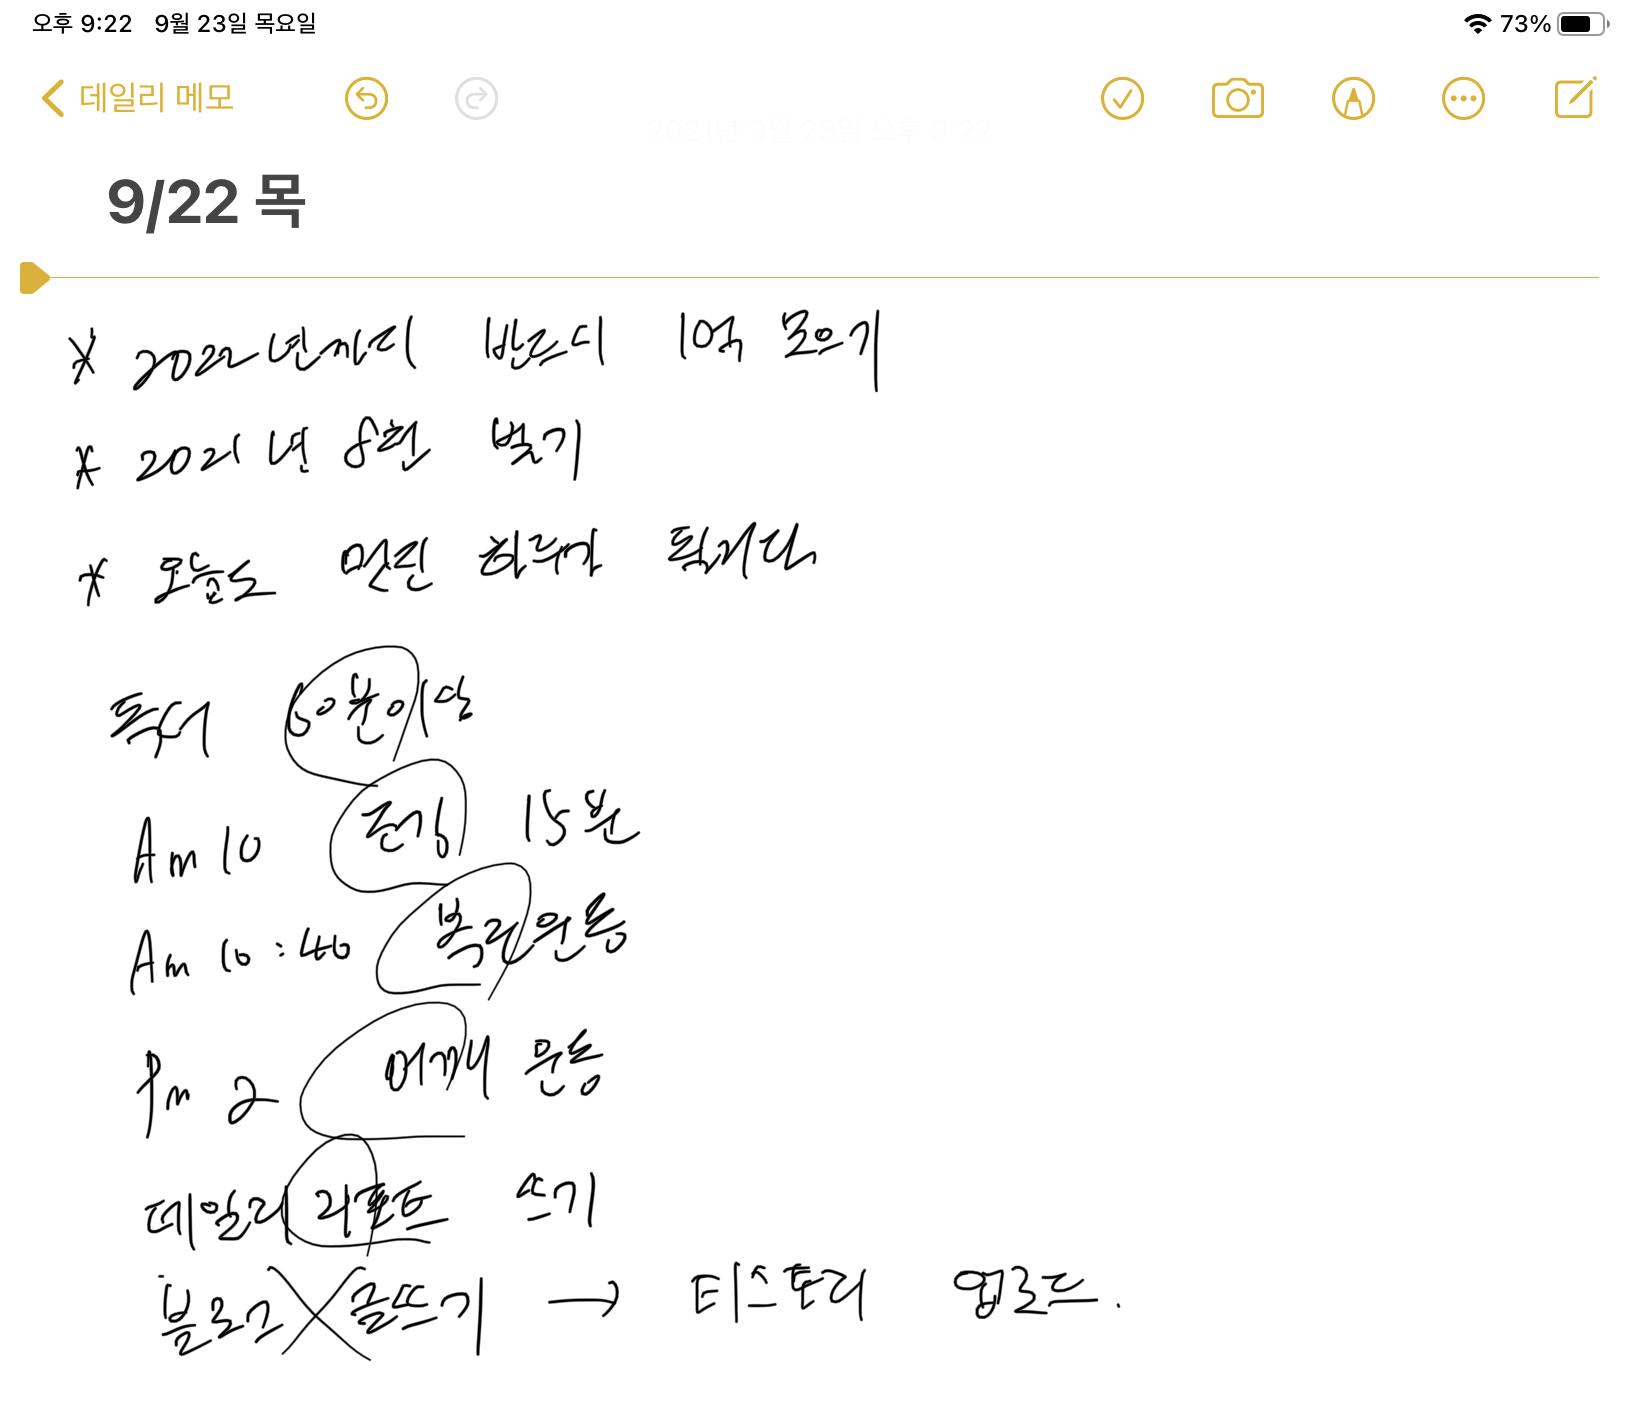 오후 9:22 9월 23일 목요일 73%
데일리 메모
2021년 9월 23일 오후 9:22
9/22 목
* 2022년까지 반드시 1억 모으기
* 2021년 8천 벌기
* 오늘도 멋진 하루가 될거다
독서 50분이상
Am 10 런깅 15분
Am 10:40 복근운동
Pm 2 어깨 운동
데일리 리포트 쓰기
블로그 글쓰기 → 티스토리 업로드.